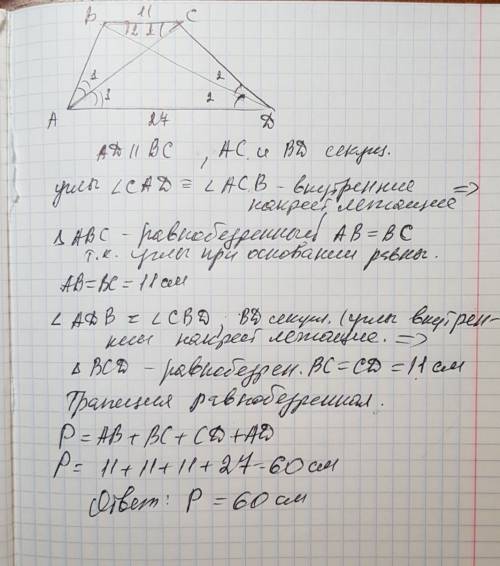 11
B C
2 1
1 1 2 2
A 27 D
AD || BC , AC и BD секущ.
углы ∠CAD = ∠ACB - внутренние =>
накрест лежащие
Δ ABC - равнобедренный, AB = BC
т.к. углы при основании равны.
AB = BC = 11 см
∠ADB = ∠CBD BD секущ. (углы внутрен-
ние накрест лежащие. =>
Δ BCD - равнобедрен. BC = CD = 11 см
Трапеция равнобедренная.
P = AB + BC + CD + AD
P = 11 + 11 + 11 + 27 = 60 см
Ответ: P = 60 см